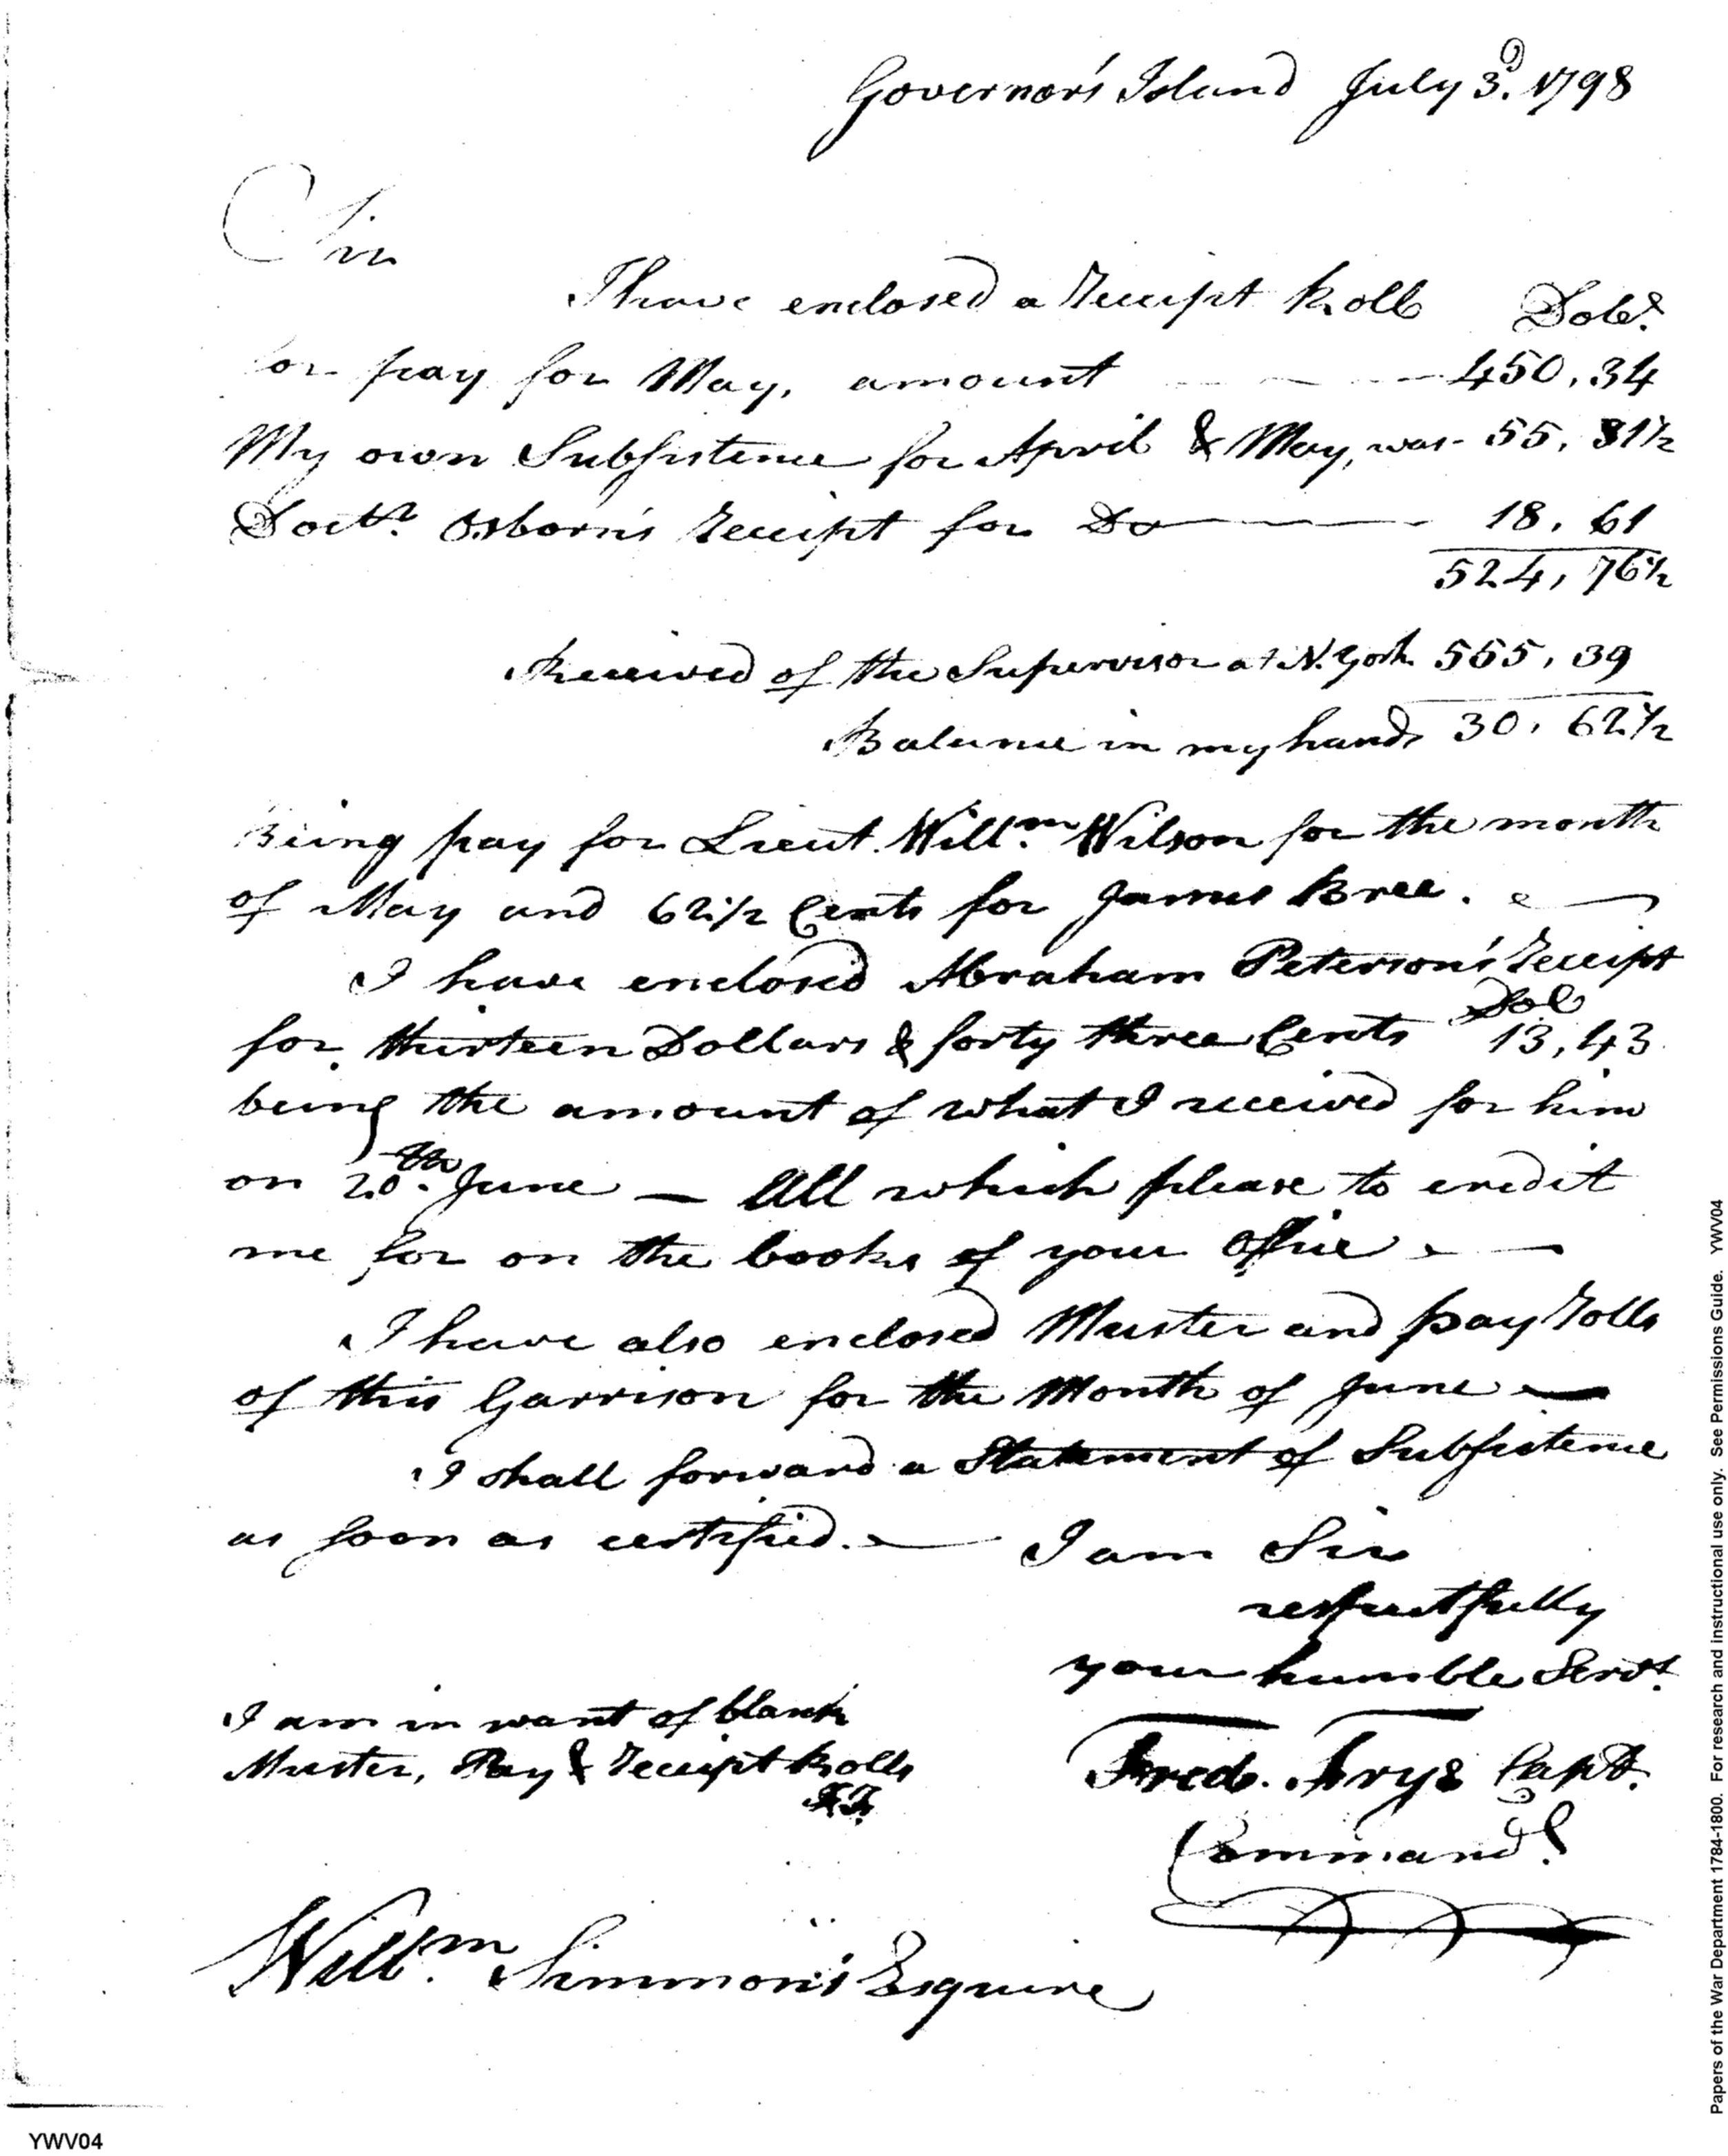 Governor's Island July 3d. 1798
Sir
I have enclosed a Receipt Roll Dolrs.
for pay for May, amount — — — 450,34
My own Subsistence for April & May, was - 55,81½
Doctr. Osborn's Receipt for Do — — — 18,61
524,76½
Received of the Supervisor at N. York 555,39
Balance in my hands 30,62½
Being pay for Lieut. Willm. Wilson for the month
of May and 62½ Cents for James Bree. —
I have enclosed Abraham Peterson's Receipt
for thirteen Dollars & forty three Cents Dol 13,43
being the amount of what I received for him
on 20th. June — All which please to credit
me for on the books of your Office. —
I have also enclosed Muster and pay rolls
of this Garrison for the Month of June —
I shall forward a Statement of Subsistence
as soon as certified. — I am Sir
respectfully
your humble Servt.
Fredk. Frye Capt.
Command.
I am in want of blank
Muster, Pay & Receipt Rolls
F.F.
Willm. Simmons Esquire
YWV04
Papers of the War Department 1784-1800. For research and instructional use only. See Permissions Guide. YWV04